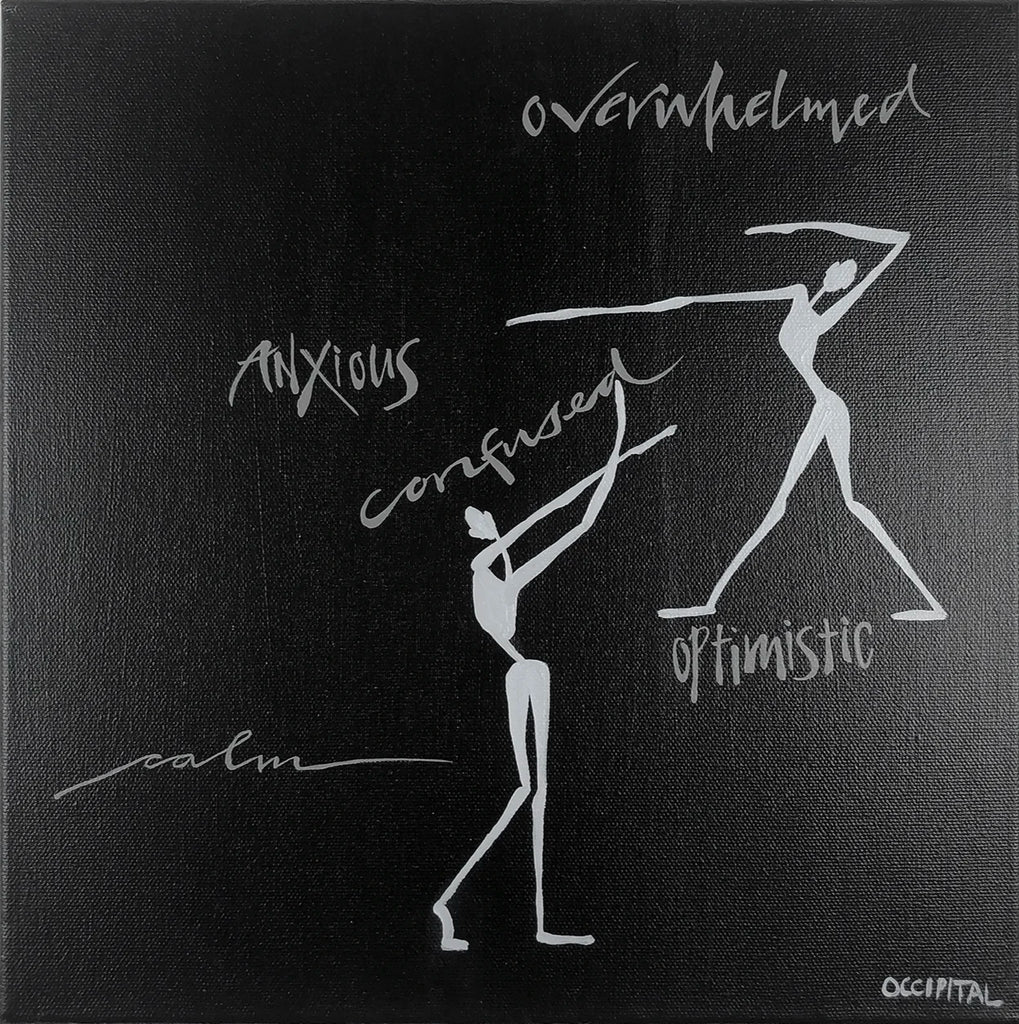 overwhelmed
ANXious
confused
optimistic
calm
OCCIPITAL